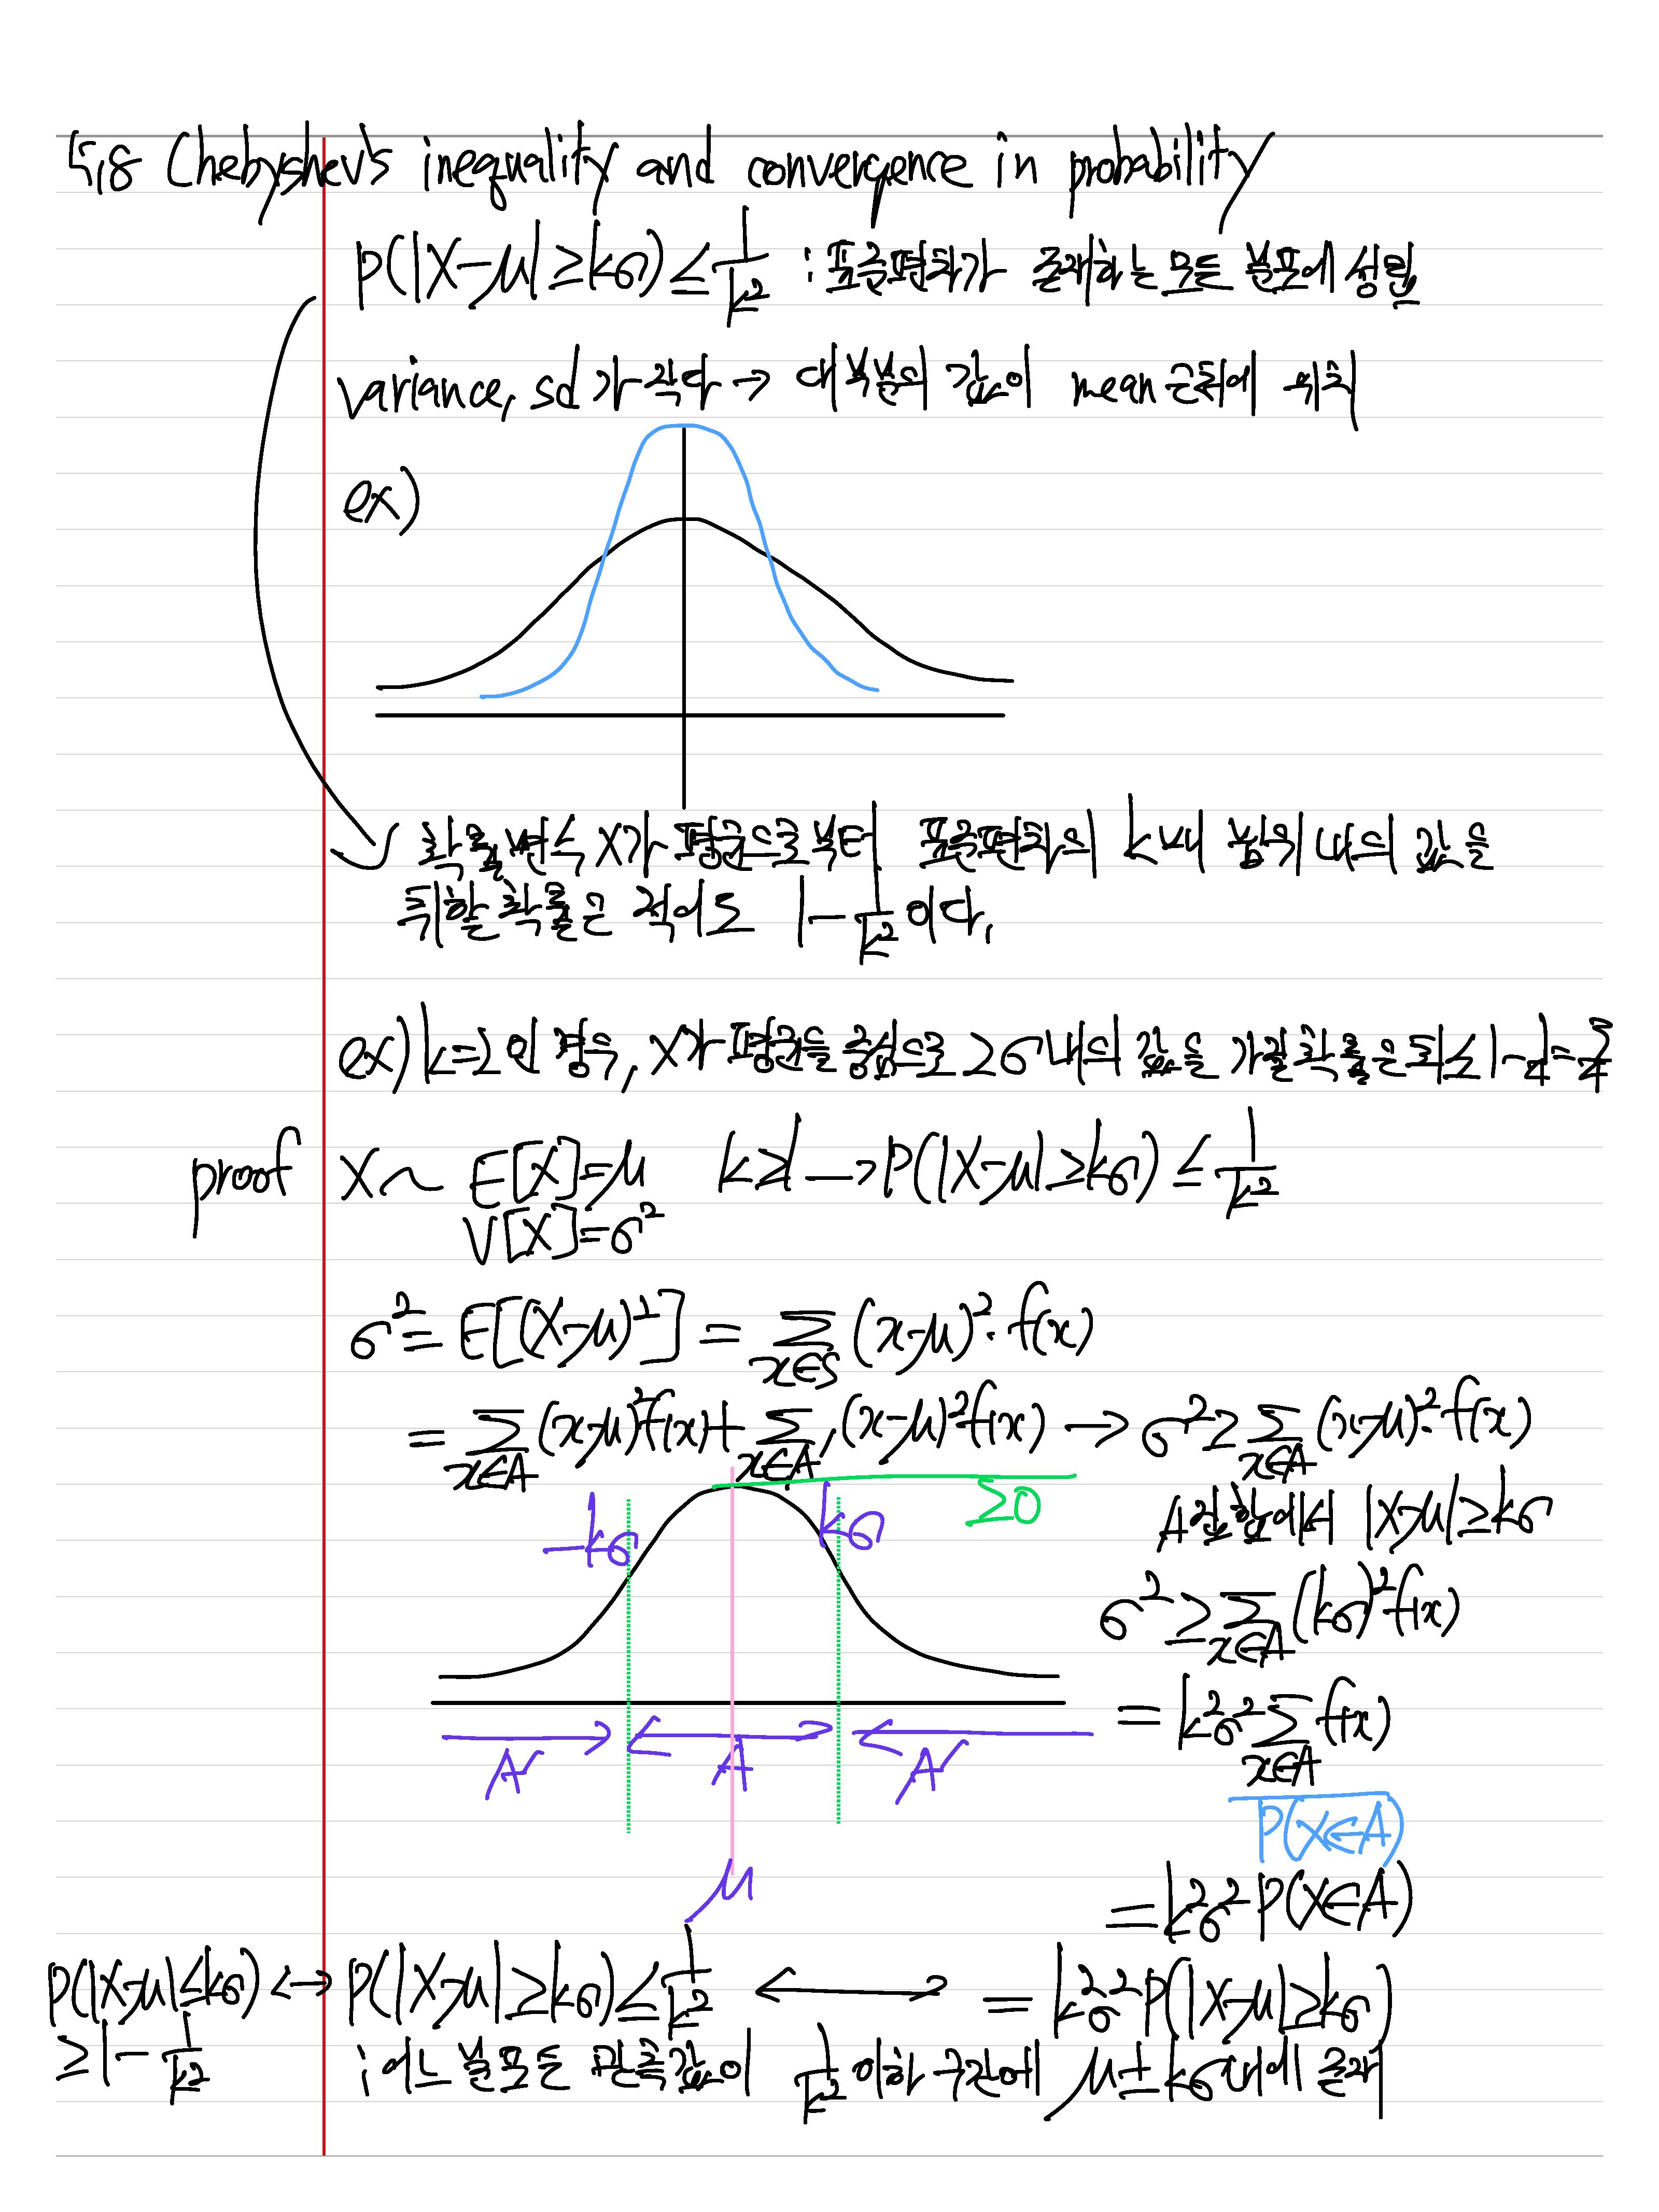 5.8 Chebyshev's inequality and convergence in probability
P(|X-μ|≥kσ)≤1/k² :표준편차가 존재하는 모든 분포에 성립
variance, sd가 작다 → 대부분의 값이 mean 근처에 위치
ex)
확률변수 X가 평균으로부터 표준편차의 k배 범위 내의 값을
취할 확률은 적어도 1-1/k²이다.
ex) k=2인 경우, X가 평균을 중심으로 2σ내의 값을 가질 확률은 최소 1-1/4=3/4
proof X~ E[X]=μ k≥1 → P(|X-μ|≥kσ) ≤ 1/k²
V[X]=σ²
σ² = E[(X-μ)²] = Σ_{x∈S} (x-μ)²·f(x)
= Σ_{x∈A} (x-μ)²f(x) + Σ_{x∈A'} (x-μ)²f(x) → σ² ≥ Σ_{x∈A} (x-μ)²·f(x)
≥0
-kσ kσ
A집합에서 |X-μ|≥kσ
σ² ≥ Σ_{x∈A} (kσ)²f(x)
= k²σ² Σ_{x∈A} f(x)
A' A A'
P(X∈A)
μ
= k²σ² P(X∈A)
P(|X-μ|≤kσ) ↔ P(|X-μ|≥kσ)≤1/k² ↔ = k²σ² P(|X-μ|≥kσ)
≥1-1/k² : 어느 분포든 관측값이 1/k² 이하 구간에 μ±kσ내에 존재